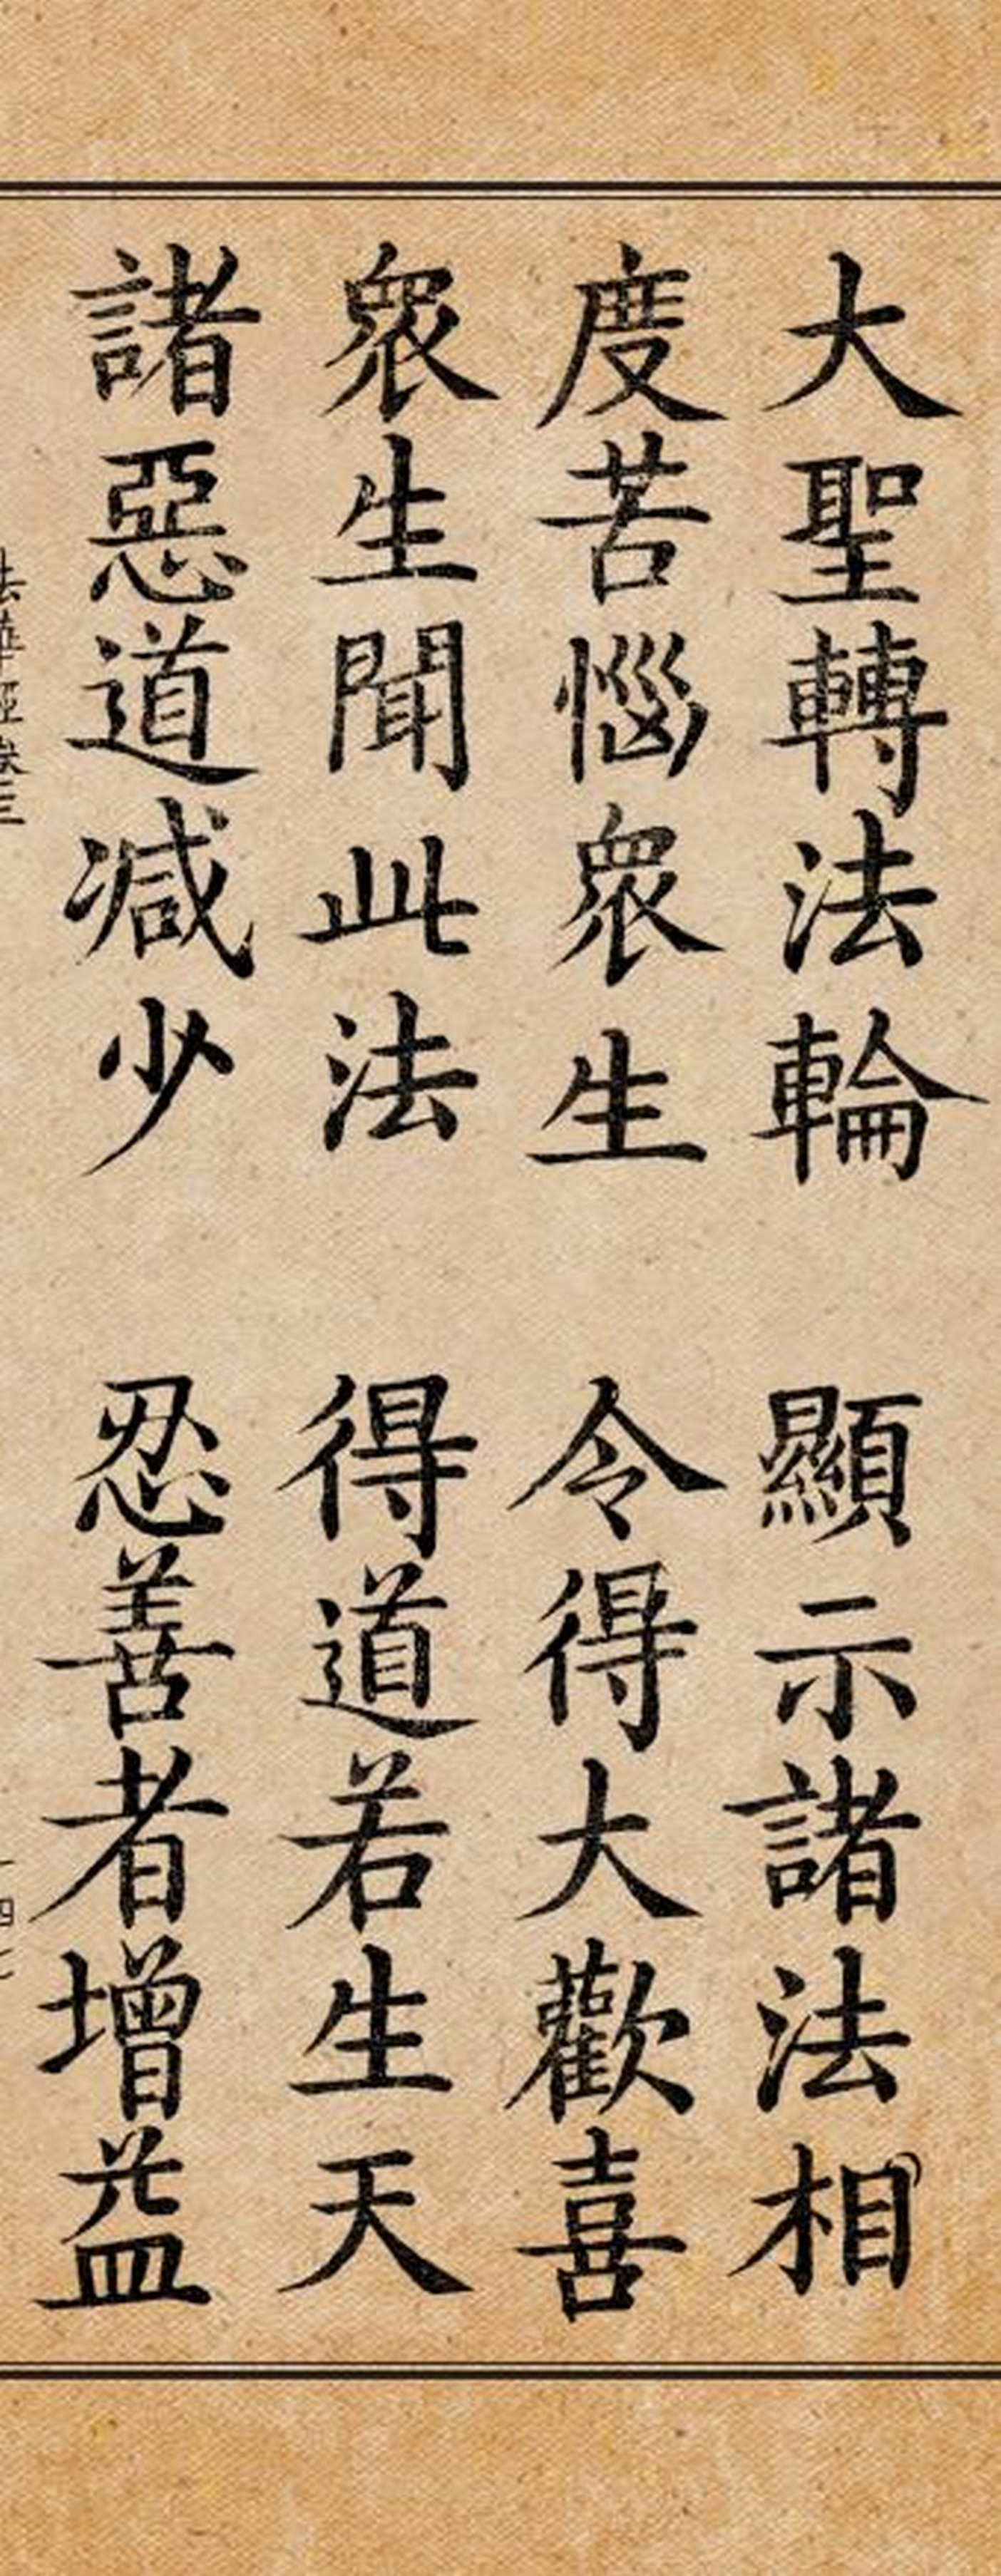 大聖轉法輪 顯示諸法相
度苦惱衆生 令得大歡喜
衆生聞此法 得道若生天
諸惡道減少 忍善者增益
法華經卷三